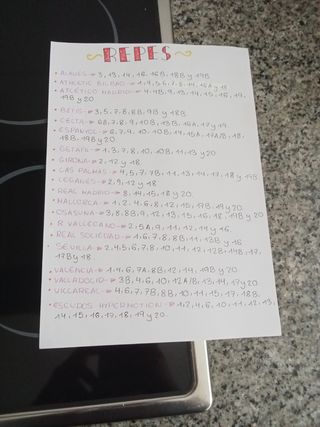 REPES
• ALAVÉS → 3, 13, 14, 16, 16B, 18B y 19B.
• ATHLETIC BILBAO → 1, 4, 5, 6, 7, 8, 14, 15A y 18
• ATCÉTICO MADRID → 4, 4B, 9, 13, 14, 15, 16, 19,
19B y 20
• BETIS → 3, 5, 7, 8, 8B, 9B y 18B
• CELTA → 6B, 7, 8, 9, 10B, 13B, 16A, 17 y 19
• ESPANYOL → 6, 7, 9, 10, 10B, 14, 15A, 17A/B, 18,
18B, 19B y 20.
• GETAFE → 1, 3, 7, 8, 10, 10B, 11, 13 y 20
• GIRONA → 2, 12 y 18.
• LAS PALMAS → 4, 5, 7, 7B, 11, 13, 14, 17, 18 y 19.
• LEGANÉS → 2, 9, 12 y 18
• REAL MADRID → 8, 14, 15, 18 y 20.
• MALLORCA → 1, 2, 4, 6, 8, 12, 15, 19B, 19 y 20.
• OSASUNA → 3, 8, 8B, 9, 12, 13, 15, 16, 18, 19B y 20
• R. VALLECANO → 2, 5A, 9, 11, 12, 14 y 16
• REAL SOCIEDAD → 1, 6, 7, 8, 8B, 11, 13B y 16
• SEVILLA → 2, 4, 5, 6, 7, 8, 10, 11, 12, 12B, 14B, 17,
17B y 18.
• VALENCIA → 1, 4, 6, 7A, 8B, 12, 14, 19B y 20
• VALLADOLID → 3B, 4, 6, 10, 12A/B, 13, 14, 17 y 20.
• VILLAREAL → 4, 6, 7, 7B, 8B, 10, 11, 15, 17, 18B.
• ESCUDOS HYPERMOTION → 1, 2, 4, 6, 10, 11, 12, 13,
14, 15, 16, 17, 18, 19 y 20.